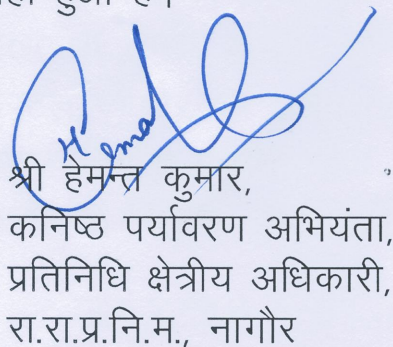 हुआ है।
Hemat
श्री हेमन्त कुमार,
कनिष्ठ पर्यावरण अभियंता,
प्रतिनिधि क्षेत्रीय अधिकारी,
रा.रा.प्र.नि.म., नागौर